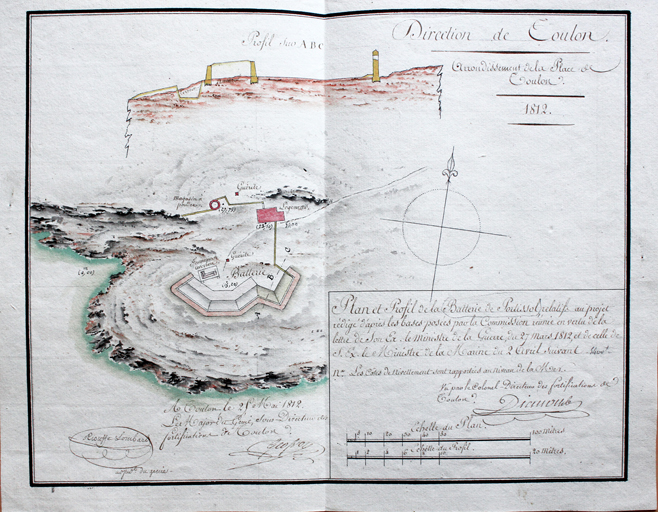 Profil sur ABC
Direction de Toulon.
Arrondissement de la Place de
Toulon.
1812.
Guérite
Magasin à
poudre
Logement
Guérite
Batterie
A
B
C
Plan et Profil de la Batterie de Portissol relatifs au projet
rédigé d'après les bases posées par la Commission réunie en vertu de la
lettre de Son Ex. le Ministre de la Guerre, du 27 mars 1812 et de celle de
S. E. le Ministre de la Marine du 2 Avril suivant
Nta. Les Cotes de Nivellement sont rapportées au niveau de la Mer.
Vu par le Colonel Directeur des fortifications de
Toulon.
A Toulon le 25 Mai 1812.
Le Major du Génie, Sous Directeur des
fortifications de Toulon
Echelle du Plan.
100 mètres
Echelle du Profil.
20 mètres.